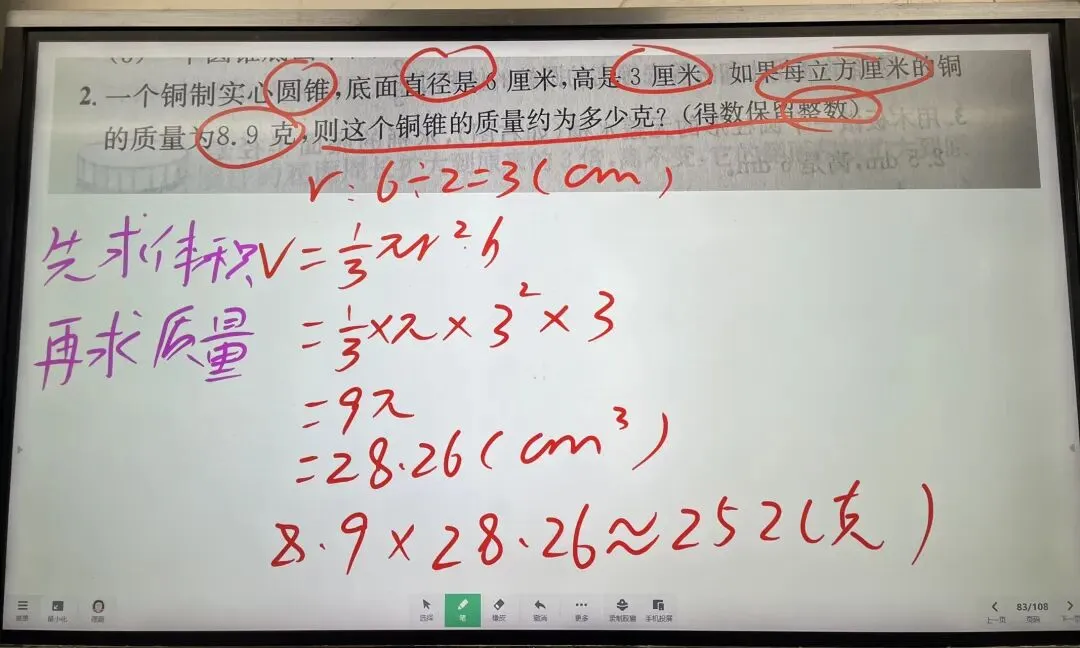 2. 一个铜制实心圆锥,底面直径是6厘米,高是3厘米。如果每立方厘米的铜
的质量为8.9克,则这个铜锥的质量约为多少克?(得数保留整数)
r: 6÷2=3(cm)
先求体积 V=⅓πr²h
再求质量 =⅓×π×3²×3
=9π
=28.26(cm³)
8.9×28.26≈252(克)
菜单 最小化 选择 笔 橡皮 撤消 更多 录制胶囊 手机投屏 上一页 83/108 页码 下一页